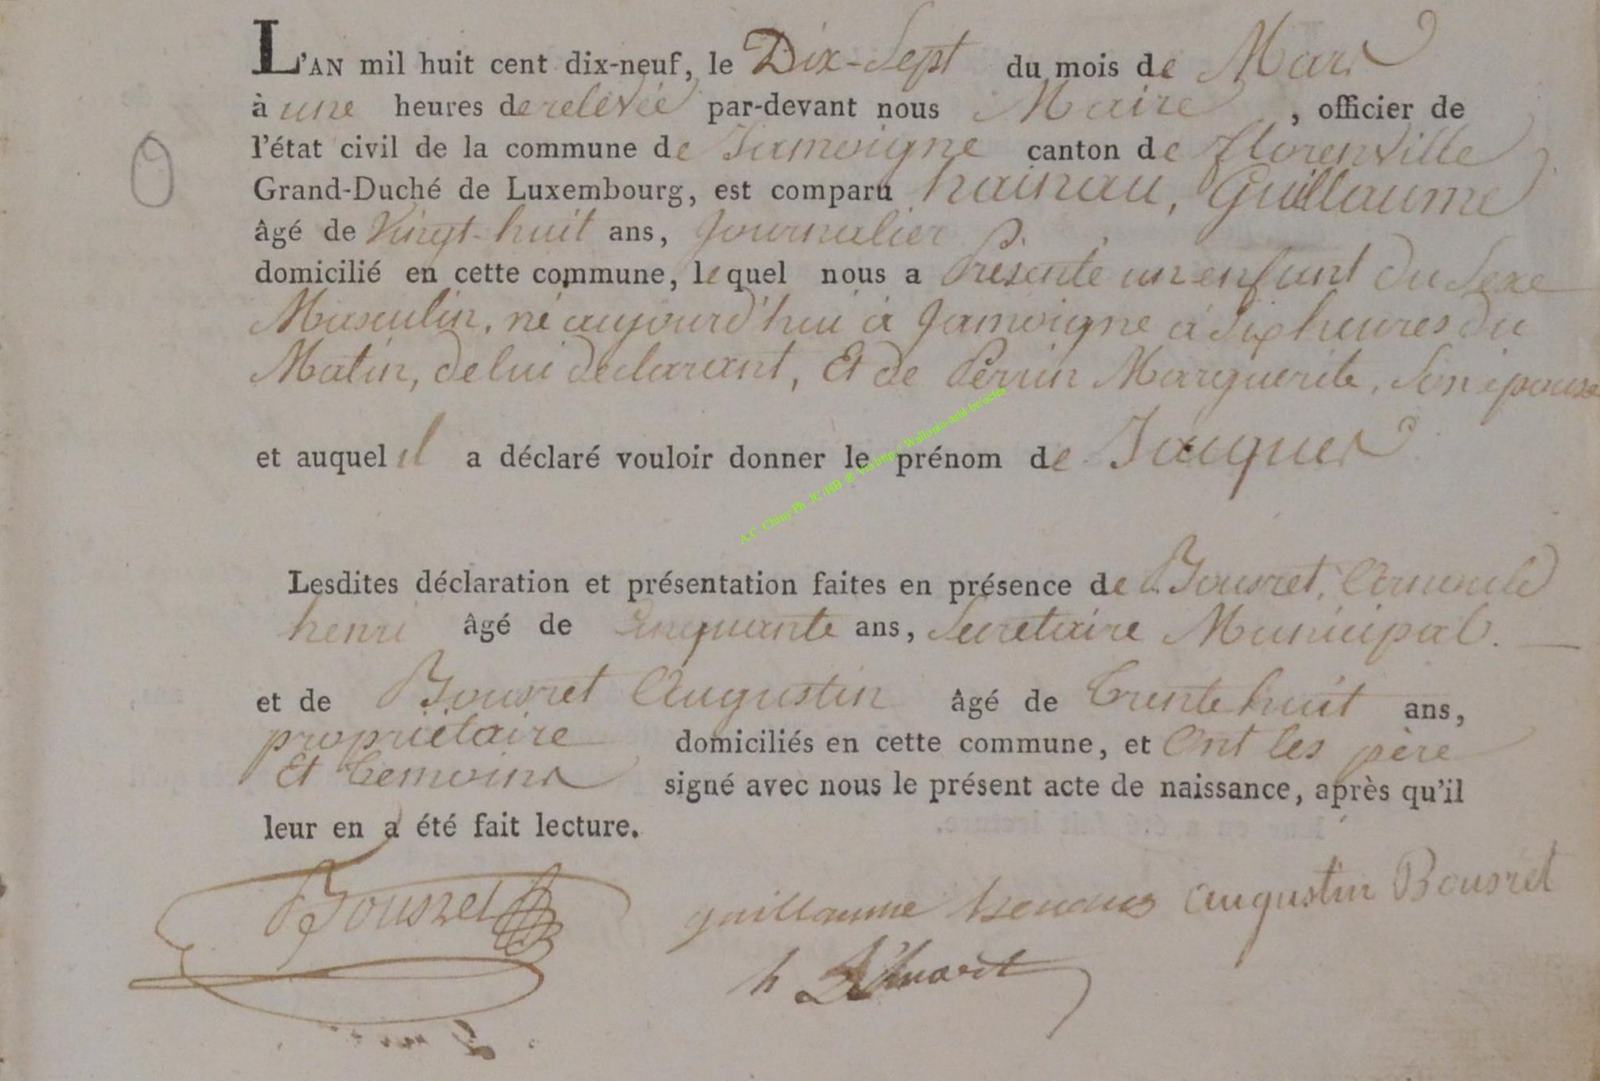 L'AN mil huit cent dix-neuf, le Dix-Sept du mois de Mars
à une heures de relevée par-devant nous Maire, officier de
l'état civil de la commune de Jamoigne canton de florenville
Grand-Duché de Luxembourg, est comparu hainau, Guillaume
âgé de Vingt-huit ans, Journalier
domicilié en cette commune, lequel nous a Présenté un enfant Du Sexe
Masculin, né aujourd'hui à Jamoigne à Six heures du
Matin, de lui declarant, Et de Perrin Marguerite, Son épouse
et auquel il a déclaré vouloir donner le prénom de Jaques
Lesdites déclaration et présentation faites en présence de Bousret,
henri âgé de Cinquante ans, Secretaire Municipal.
et de Bousret Augustin âgé de trente huit ans,
propriétaire domiciliés en cette commune, et Ont les père
Et temoins signé avec nous le présent acte de naissance, après qu'il
leur en a été fait lecture.
Bousret guillaume augustin Bousret
h